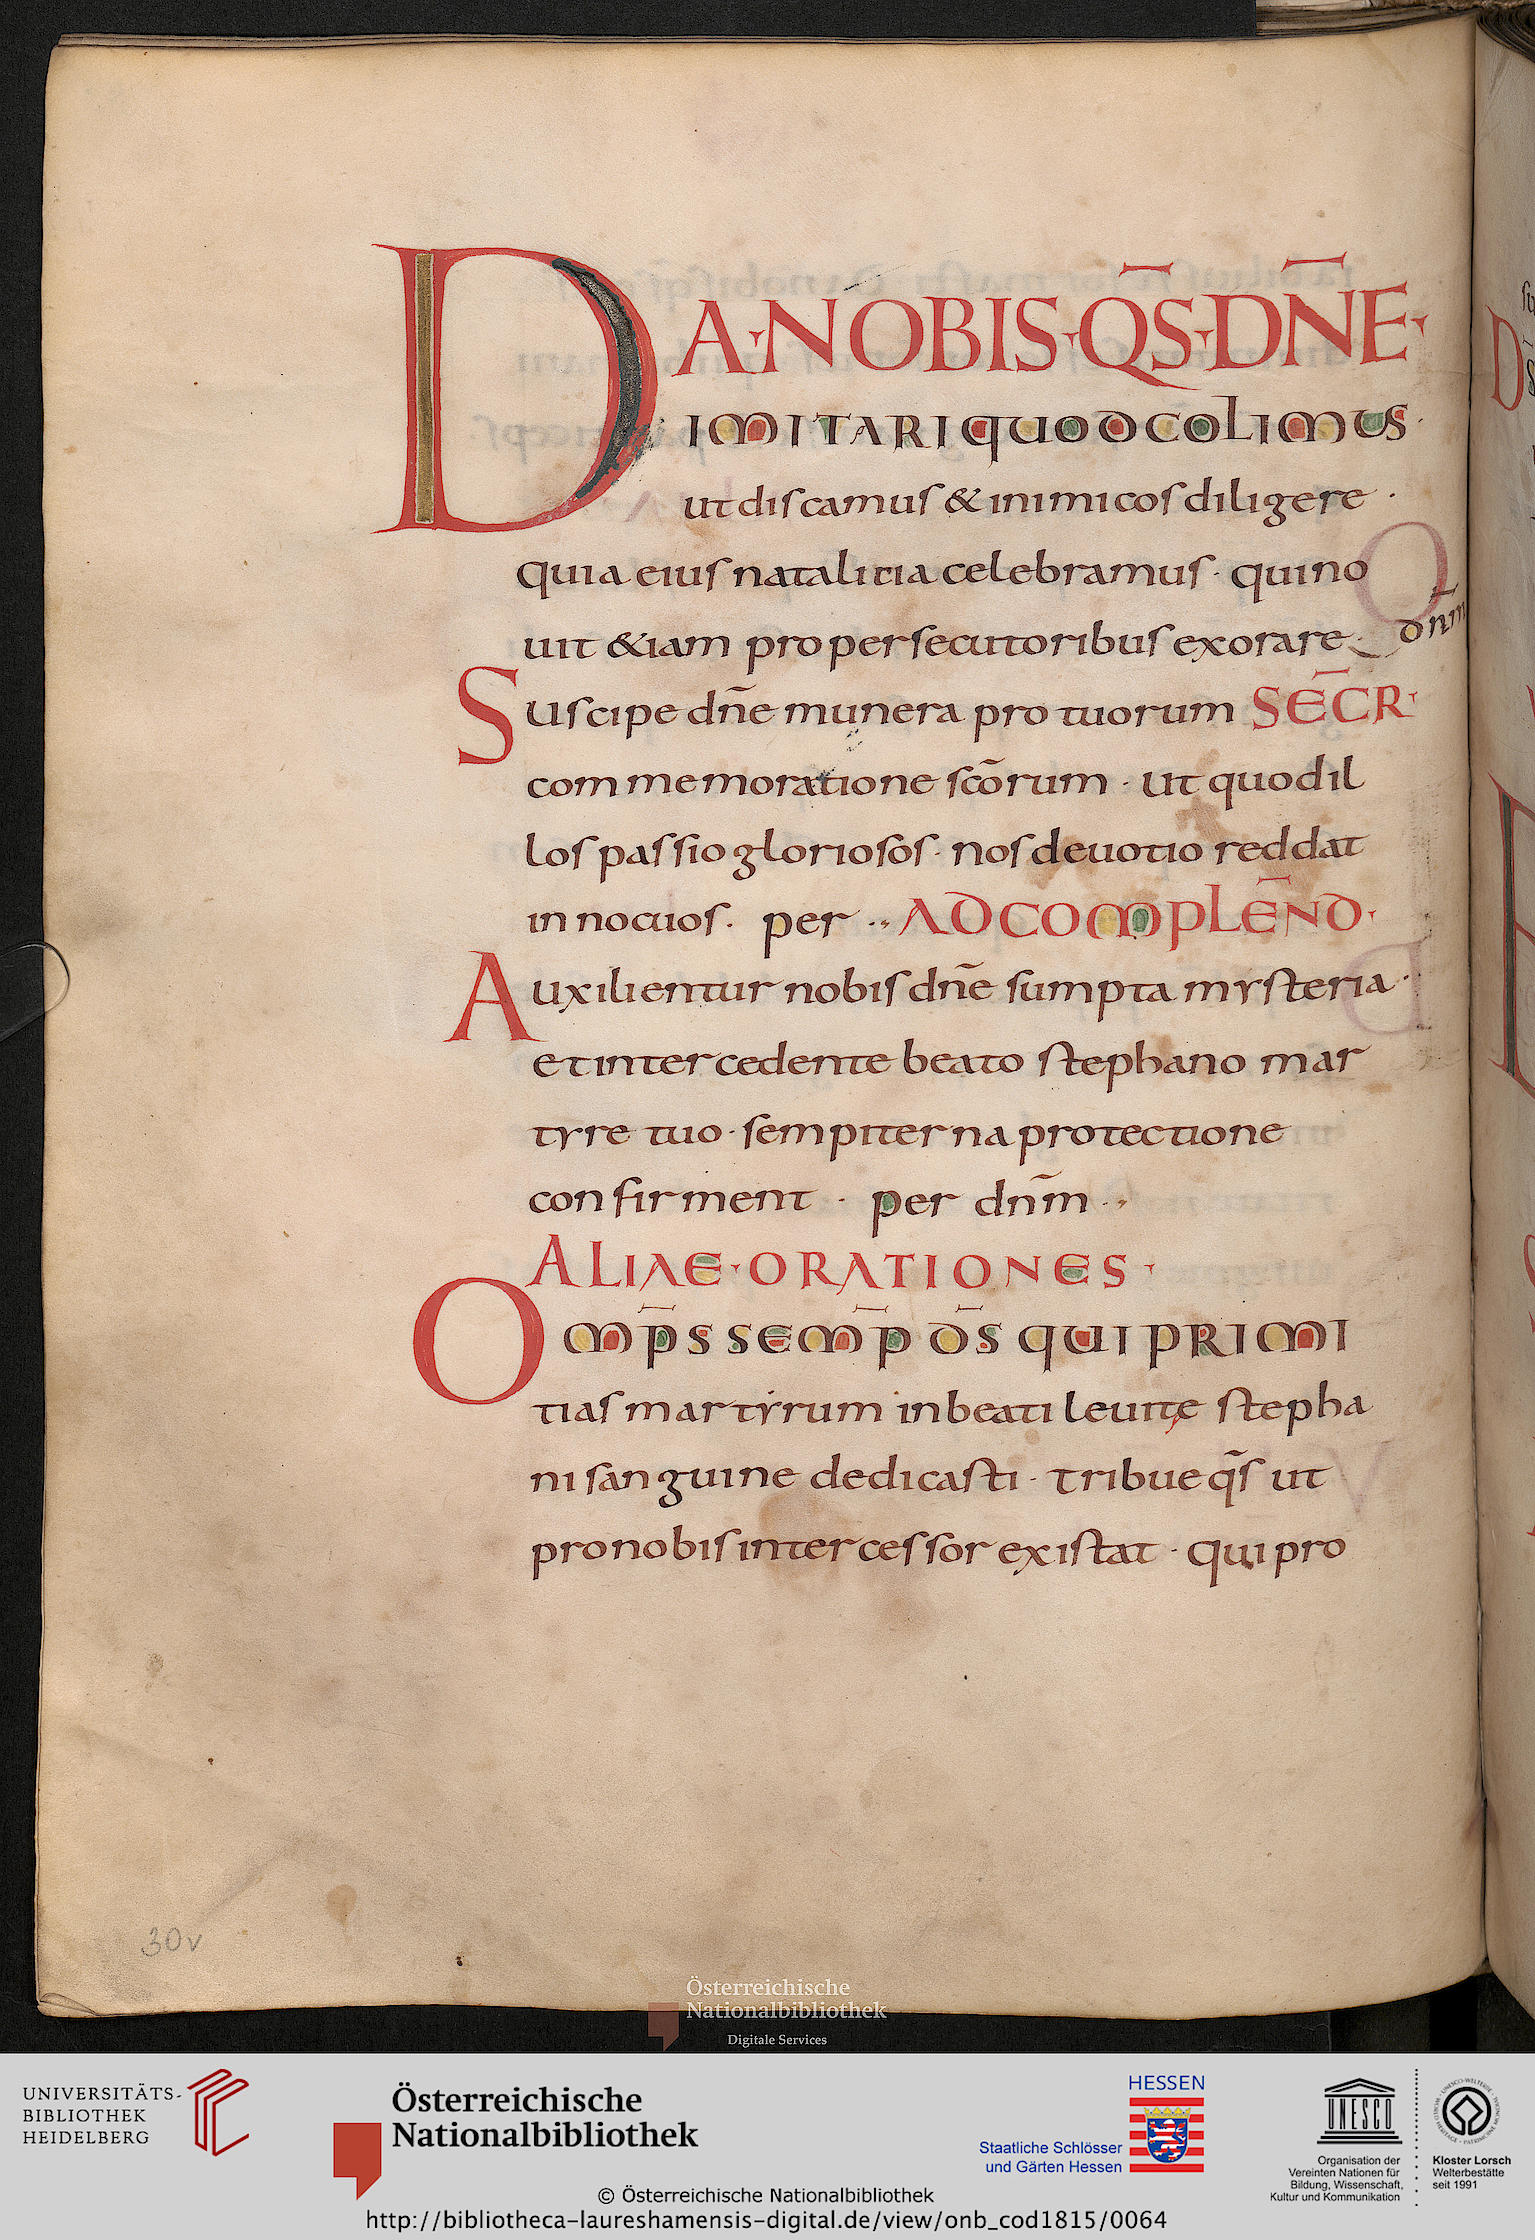 DA·NOBIS·QS̄·DN̄E·
IMITARI QUOD COLIMUS·
ut discamus & inimicos diligere·
quia eius natalicia celebramus· qui no
uit &iam pro persecutoribus exorare· dn̄m
Suscipe dn̄e munera pro tuorum SEC̄R·
commemoratione scōrum· ut quod il
los passio gloriosos· nos deuotio reddat
innocuos· per·· AD COMPLEN̄D·
Auxilientur nobis dn̄e sumpta mysteria·
et intercedente beato stephano mar
tyre tuo· sempiterna protectione
confirment· per dn̄m··
ALIAE·ORATIONES·
OMP̄S SEMP̄ D̄S QUI PRIMI
tias martyrum in beati leuitę stepha
ni sanguine dedicasti· tribue q̄s ut
pro nobis intercessor existat· qui pro
30v
Österreichische
Nationalbibliothek
Digitale Services
UNIVERSITÄTS-
BIBLIOTHEK
HEIDELBERG
Österreichische
Nationalbibliothek
HESSEN
Staatliche Schlösser
und Gärten Hessen
UNESCO
Organisation der
Vereinten Nationen für
Bildung, Wissenschaft,
Kultur und Kommunikation
Kloster Lorsch
Welterbestätte
seit 1991
© Österreichische Nationalbibliothek
http://bibliotheca-laureshamensis-digital.de/view/onb_cod1815/0064